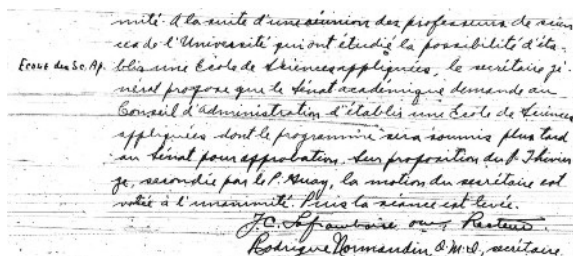 nimité. A la suite d'une réunion des professeurs de scien-
ces de l'Université qui ont étudié la possibilité d'éta-
Ecole des Sc. Ap. blir une École de Sciences appliquées, le secrétaire gé-
néral propose que le Sénat académique demande au
Conseil d'administration d'établir une École de Sciences
appliquées dont le programme sera soumis plus tard
au Sénat pour approbation. Sur proposition du P. Thivier
ge, secondée par le P. Guay, la motion du secrétaire est
votée à l'unanimité. Puis la séance est levée.
J. C. Laframboise o.m.i., Recteur.
Rodrigue Normandin O.M.I., secrétaire